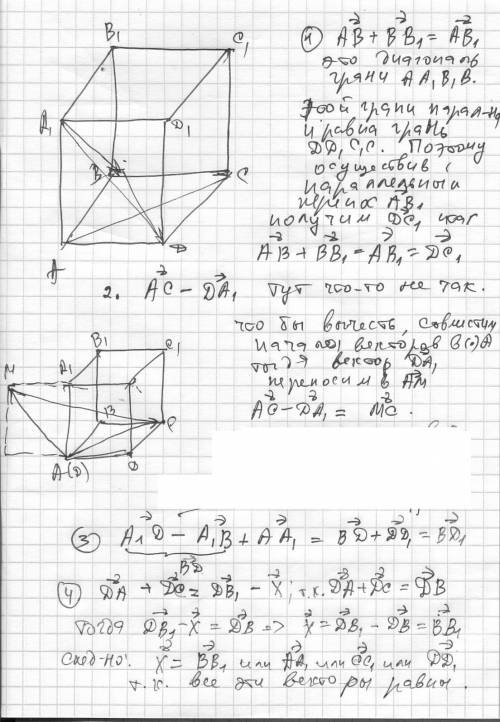 B₁ C₁
A₁ D₁
B C
A D
1) AB + BB₁ = AB₁
это диагональ
грани AA₁B₁B.
Этой грани парал-на
и равна грань
DD₁C₁C. Поэтому
осуществив
параллельный
перенос AB₁
получим DC₁ или
AB + BB₁ = AB₁ = DC₁
2. AC - DA₁ тут что-то не так.
что бы вычесть, совместим
начало векторов в (·)A
тогда вектор DA₁
переносим в AM
AC - DA₁ = MC.
B₁ C₁
M A₁
B C
A-(D) D
3) A₁D - A₁B + AA₁ = BD + DD₁ = BD₁
BD
4) DA + DC = DB₁ - X; т.к. DA + DC = DB
тогда DB₁ - X = DB => X = DB₁ - DB = BB₁
след-но: X = BB₁ или AA₁ или CC₁ или DD₁
т.к. все эти векторы равны.